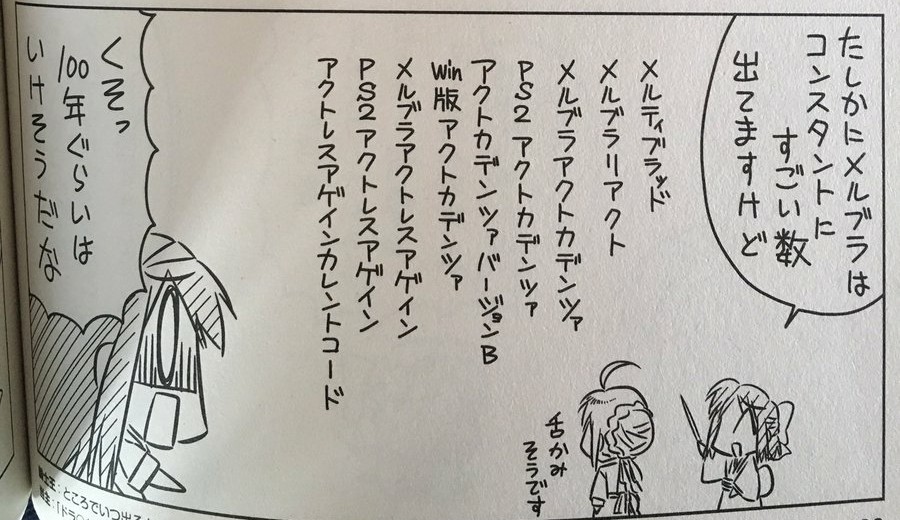 たしかにメルブラは
コンスタントに
すごい数
出てますけど
メルティブラッド
メルブラリアクト
メルブラアクトカデンツァ
PS2アクトカデンツァ
アクトカデンツァバージョンB
Win版アクトカデンツァ
メルブラアクトレスアゲイン
PS2アクトレスアゲイン
アクトレスアゲインカレントコード
舌かみ
そうです
くそっ
100年ぐらいは
いけそうだな
：ところでいつ出
：「ドラ